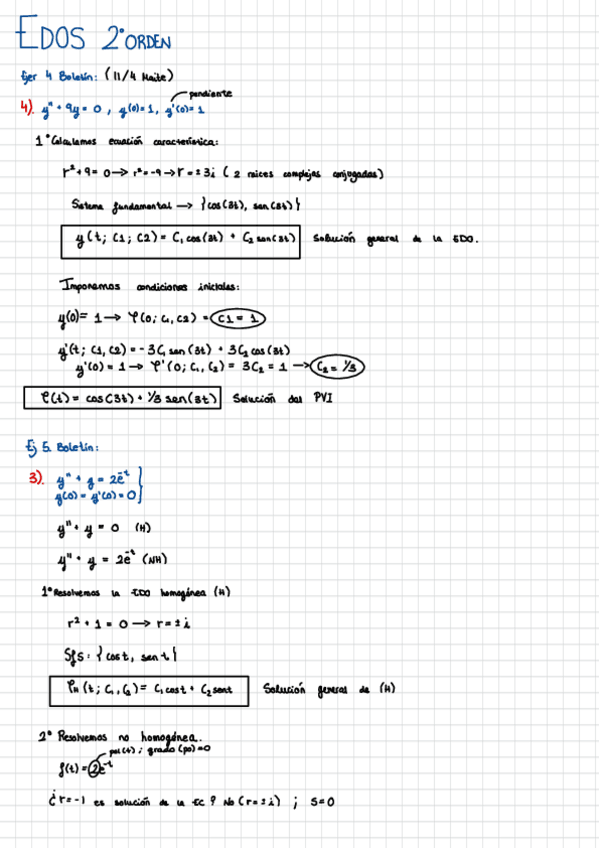 EDOS 2º ORDEN
Ejer 4 Boletín: (11/4 Maite)
pendiente
4). y'' + 9y = 0 , y(0)= 1, y'(0)= 1
1º Calculamos ecuación característica:
r² + 9 = 0 → r² = -9 → r = ± 3i ( 2 raíces complejas conjugadas)
Sistema fundamental → {cos(3t), sen(3t)}
y(t; C1; C2) = C₁ cos(3t) + C₂ sen(3t) Solución general de la EDO.
Imponemos condiciones iniciales:
y(0)= 1 → φ(0; C₁, C2) = C1 = 1
y'(t; C1, C2) = - 3C₁ sen(3t) + 3C₂ cos(3t)
y'(0) = 1 → φ'(0; C₁, C₂) = 3C₂ = 1 → C₂ = 1/3
φ(t) = cos(3t) + 1/3 sen(3t) Solución del PVI
Ej 5 Boletín:
3). y'' + y = 2e⁻ᵗ }
y(0) = y'(0) = 0
y'' + y = 0 (H)
y'' + y = 2e⁻ᵗ (NH)
1º Resolvemos la EDO homogénea (H)
r² + 1 = 0 → r = ± i
Sfs: {cost, sent}
φH (t; C₁, C₂) = C₁cost + C₂ sent Solución general de (H)
2º Resolvemos no homogénea.
pol(t) ; grado (po) = 0
f(t) = 2e⁻ᵗ
¿r = -1 es solución de la EC ? No (r = ± i) ; S=0